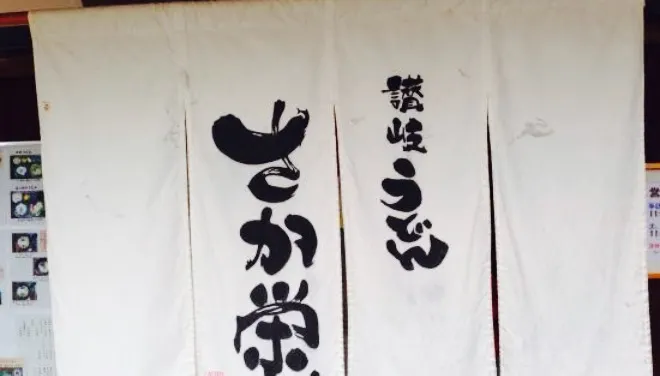 讃岐うどん
さか栄
営